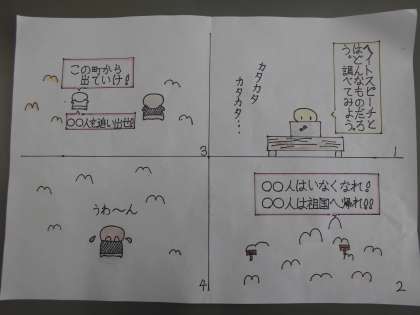 ヘイトスピーチと
はどんなものだろ
う。調べてみよう。
カタカタ
カタカタ…
1
〇〇人はいなくなれ!
〇〇人は祖国へ帰れ!!
2
この町から
出ていけ!
〇〇人を追い出せ!
3
うわ〜ん
4